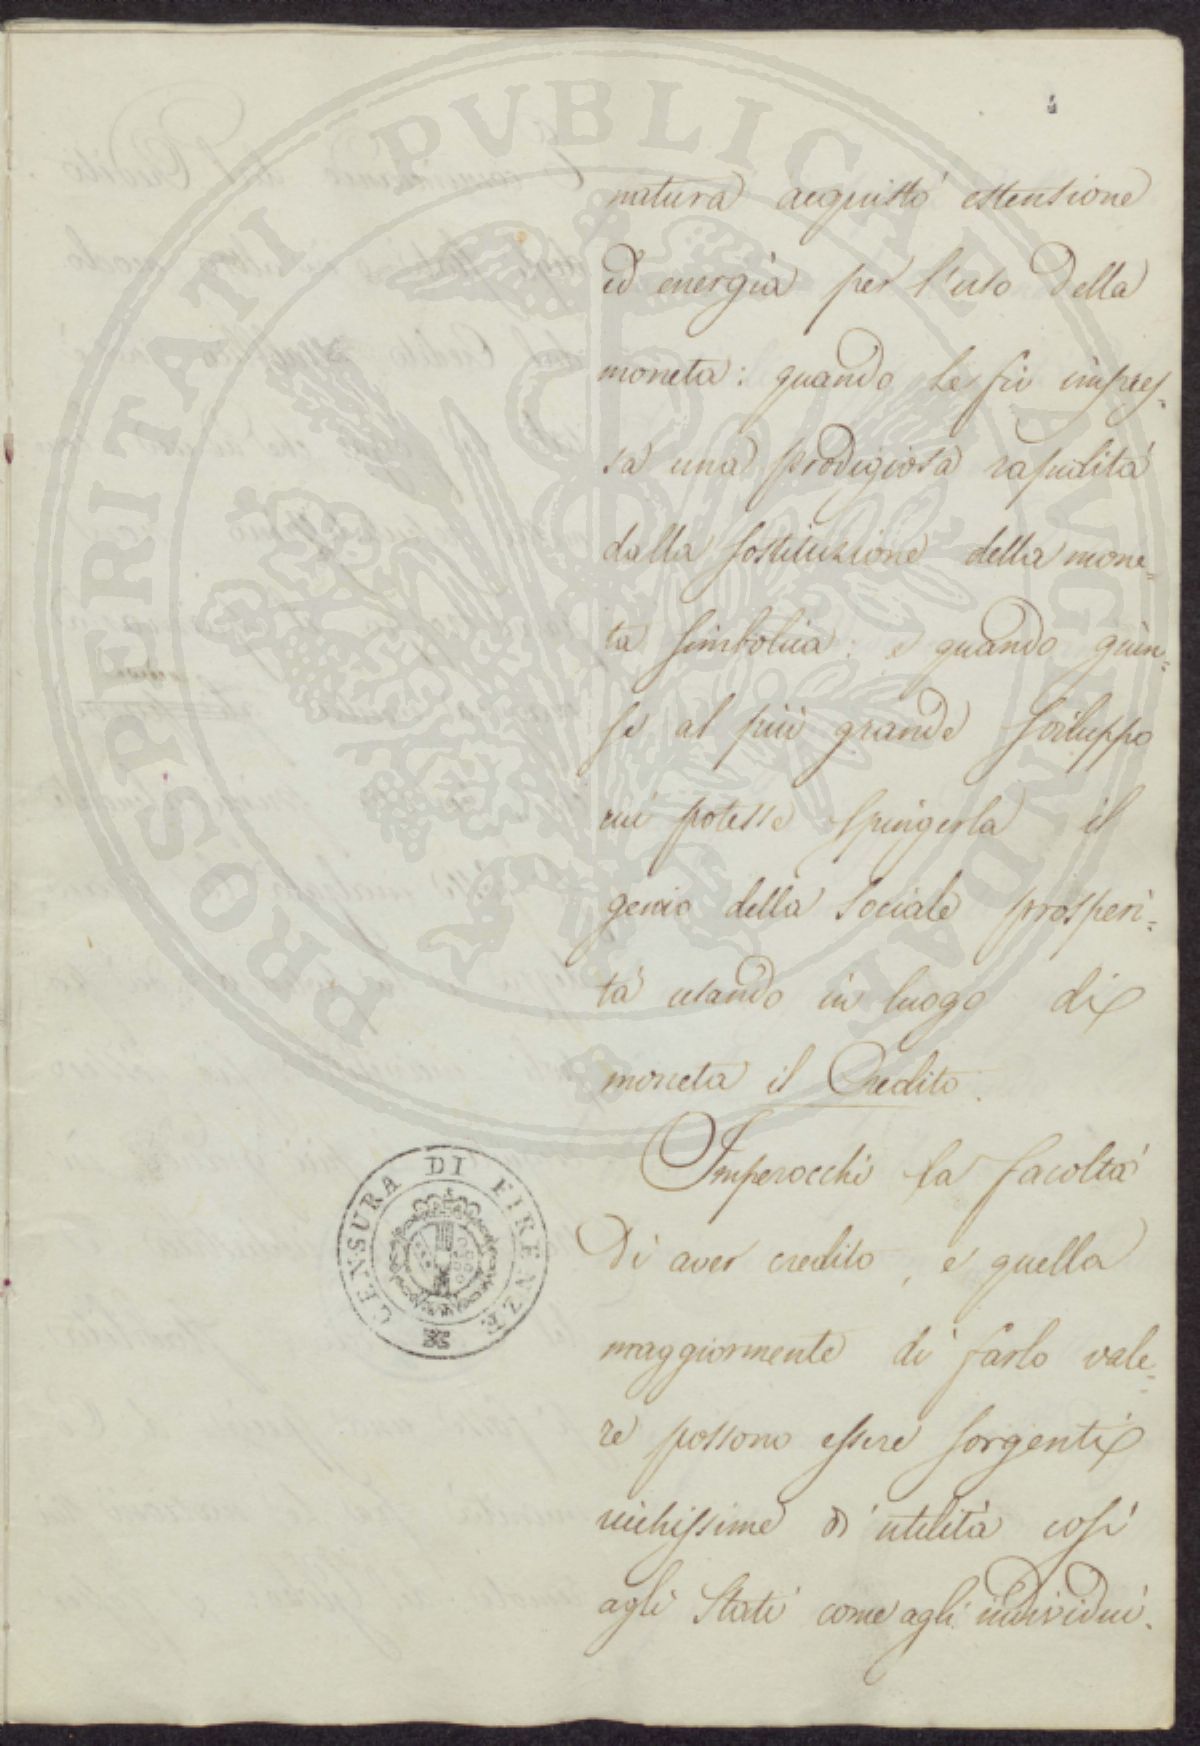 natura acquistò estensione
ed energia per l'uso della
moneta: quando le fù impres=
sa una prodigiosa rapidità
dalla sostituzione della mone=
ta simbolica: e quando giun=
se al più grande sviluppo
cui potesse spingerla il
genio della sociale prosperi=
tà usando in luogo di
moneta il Credito.
Imperocchè la facoltà
di aver credito, e quella
maggiormente di farlo vale=
re possono essere sorgenti
ricchissime di utilità così
agli Stati come agli individui.
CENSURA DI FIRENZE
PROSPERITATI PVBLICAE AVGENDAE